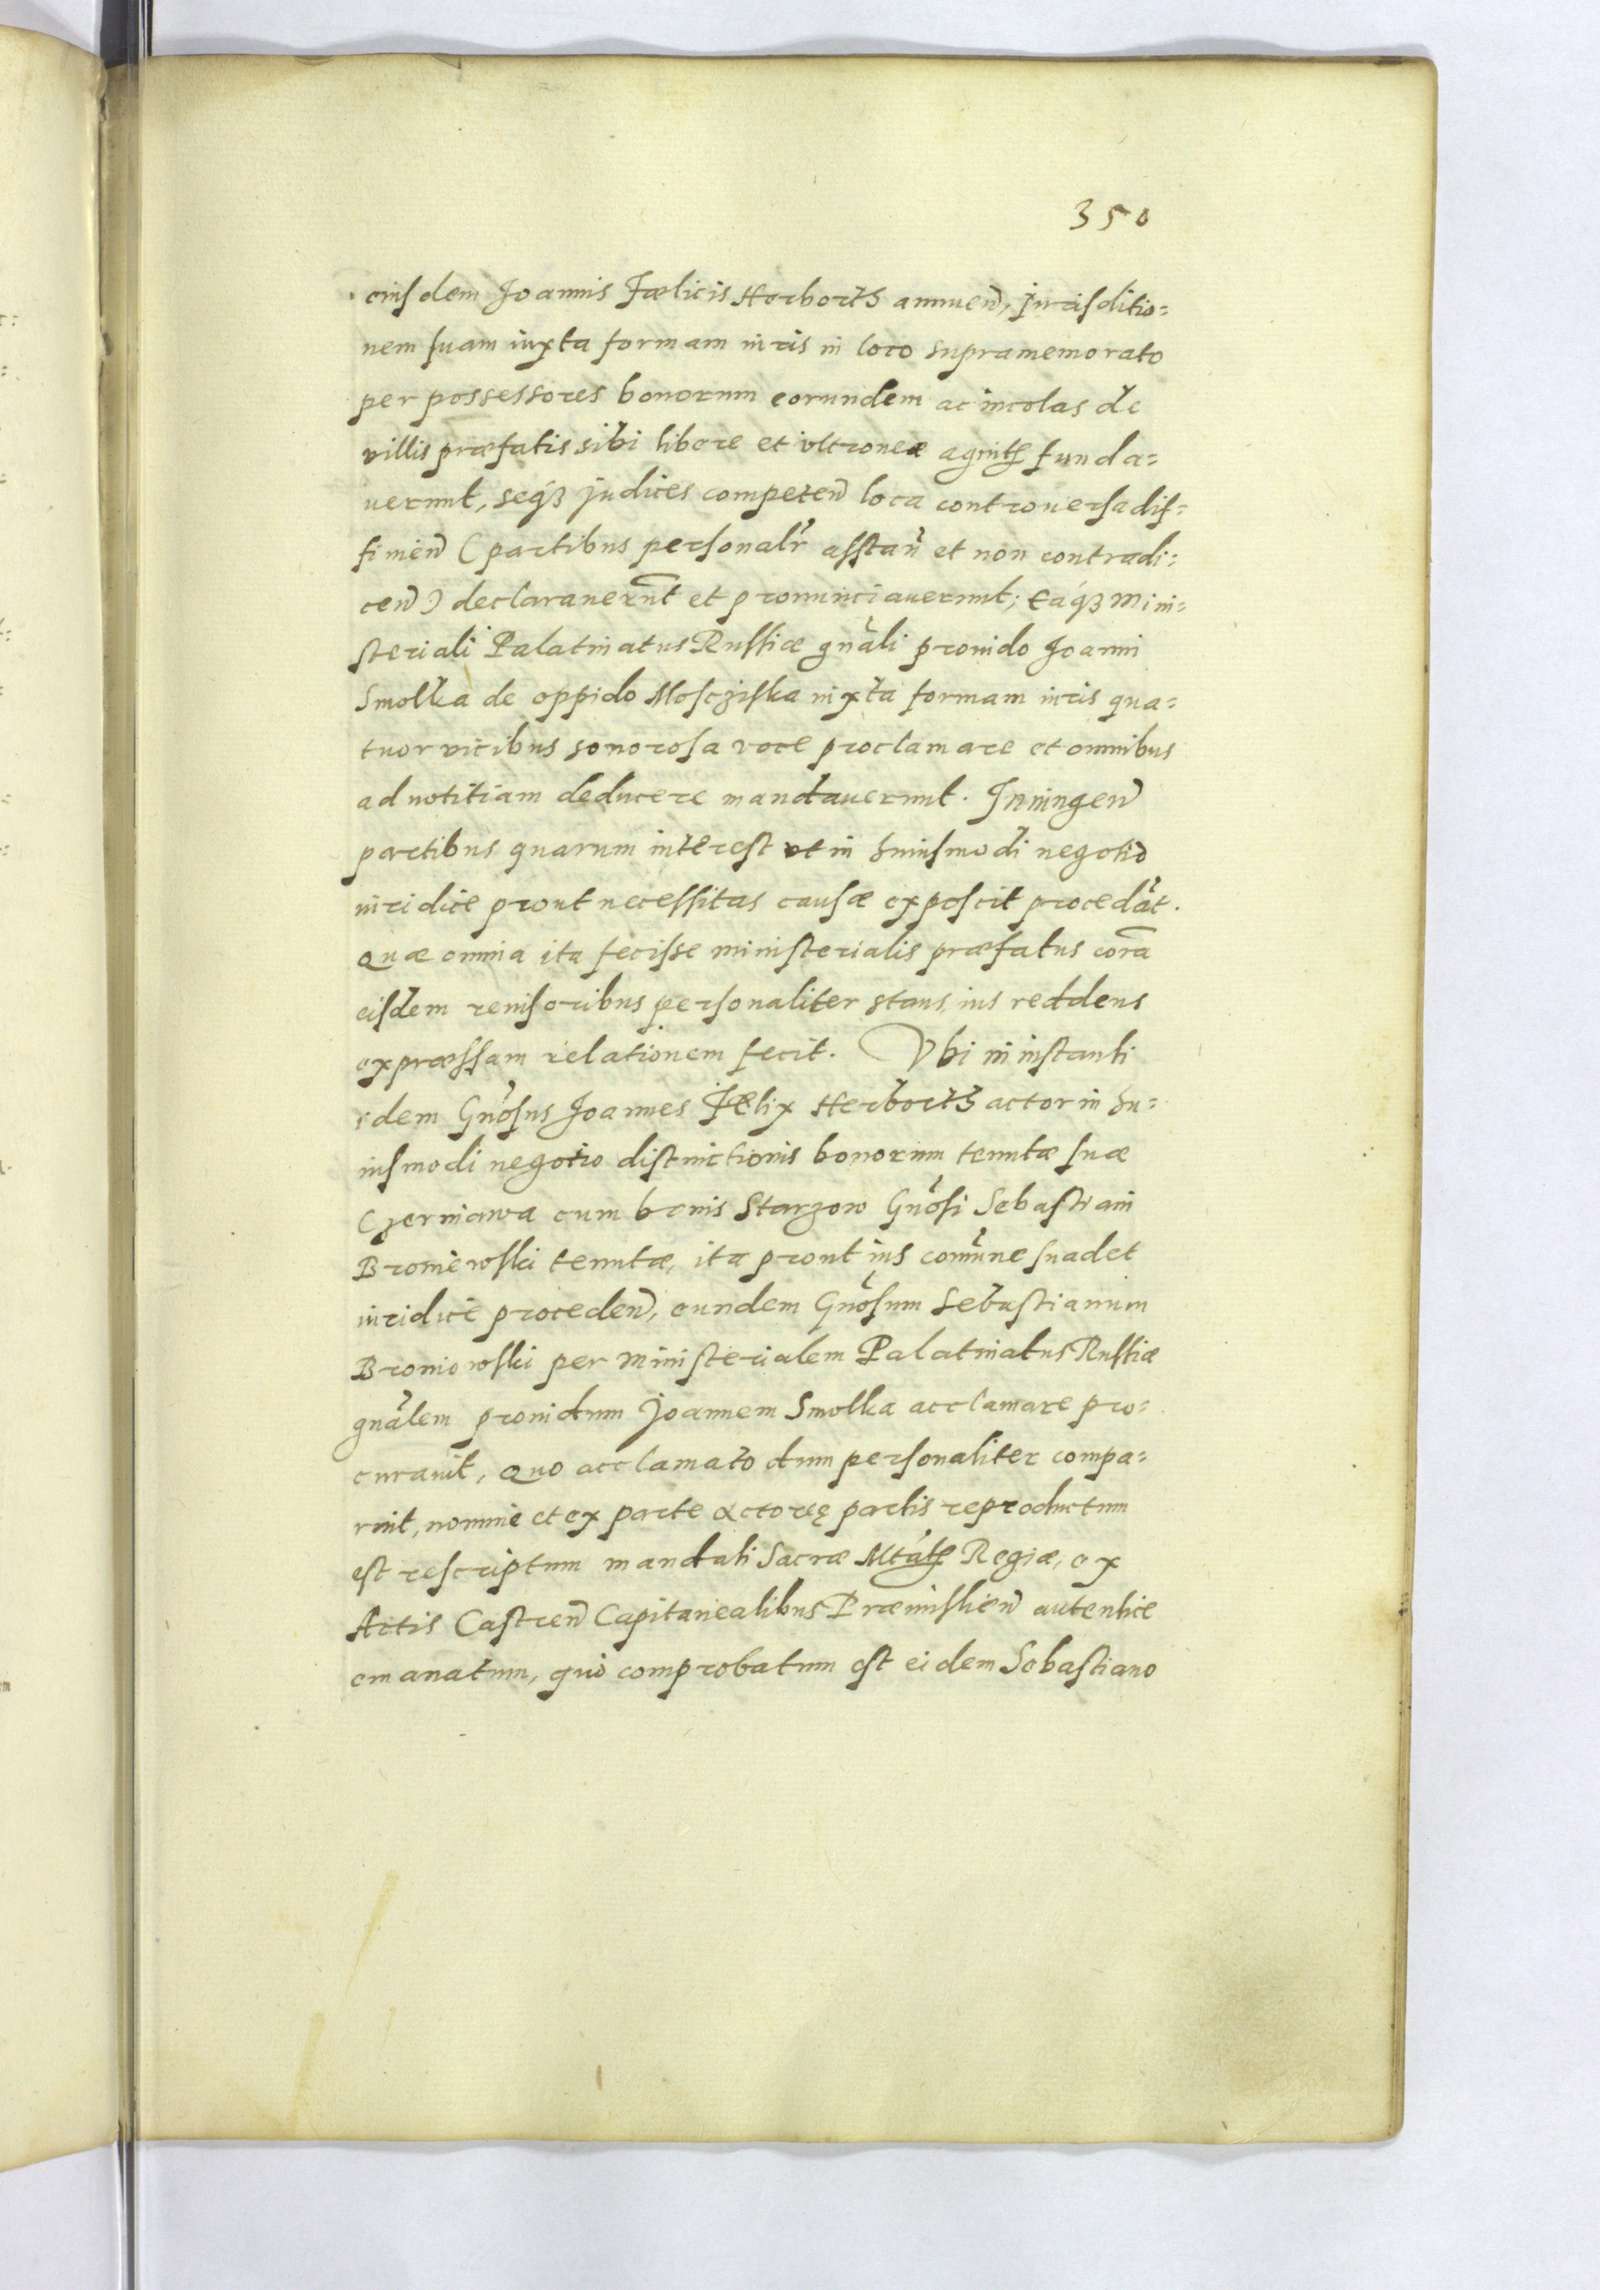 350
eiusdem Joannis Fælicis Herborth annuen̄, jurisditio=
nem suam iuxta formam iuris in loco supramemorato
per possessores bonorum eorundem ac incolas de
villis præfatis sibi libere et vltroneæ agnitꝭ funda=
uerunt, seqꝫ judices competen̄ loca controuersa dif=
finien̄ (partibus personalr̄ asstan̄ et non contradi=
cen̄) declarauerūt et pronunciauerunt; Eaqꝫ Mini=
steriali Palatinatus Russiæ gnāli prouido Joanni
Smolka de oppido Mosczisska iuxta formam iuris qua=
tuor vicibus sonorosa voce proclamare et omnibus
ad notitiam deducere mandauerunt. Iniungen̄
partibus quarum interest vt in huiusmodi negotio
iuridice prout necessitas causæ exposcit procedāt.
Quæ omnia ita fecisse ministerialis præfatus corā
eisdem reuisoribus personaliter stans, ius reddens
expræssam relationem fecit. Vbi in instanti
idem Gnōsus Joannes Fælix Herborth actor in hu=
iusmodi negotio distinctionis bonorum tenutæ suæ
Czerniawa cum bonis Starzow Gnōsi Sebastiani
Broniewski tenutæ, ita prout ius comūne suadet
iuridice proceden̄, eundem Gnōsum Sebastianum
Broniowski per Ministerialem Palatinatus Russiæ
gnālem prouidum Joannem Smolka acclamare pro=
curauit, Quo acclamato dum personaliter compa=
ruit, nomine et ex parte actoreę partis reproductum
est rescriptum mandati Sacræ Mtātꝭ Regiæ, ex
Actis Castren̄ Capitanealibus Præmislien̄ autentice
emanatum, quo comprobatum est eidem Sebastiano